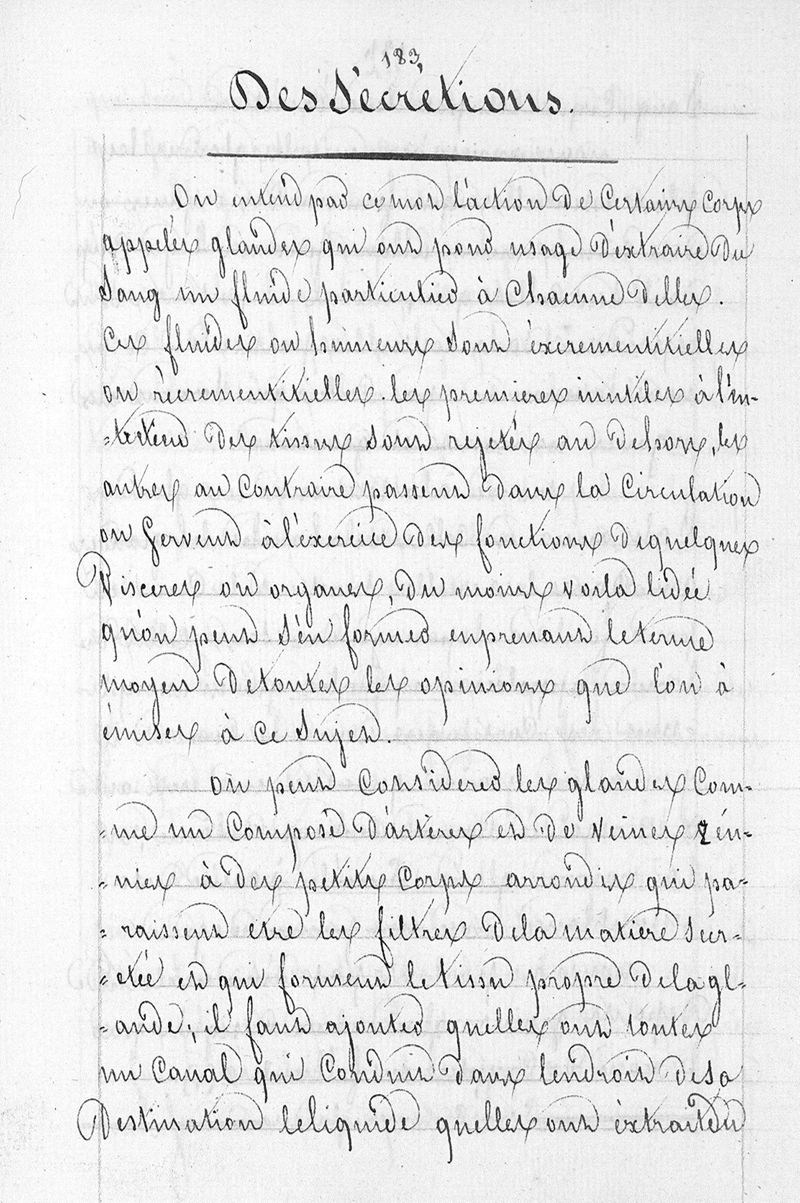 183,
Des Sécrétions.
On entend par ce mot l'action de certains corps
appelés glandes qui ont pour usage d'éxtraire du
Sang un fluide particulier à Chacune delles.
Ces fluides ou humeurs sont éxcrementitielles
ou récrementitielles. les premieres inutiles à l'en-
-tretien des tissus sont rejetés au dehors, les
autres au contraire passent dans la Circulation
ou Servent à l'éxercice des fonctions dequelques
Visceres ou organes, du moins voila lidée
qu'on peut s'én former enprenant leterme
moyen detoutes les opinions que l'on à
émises à ce Sujet.
On peut Considerer les glandes Com-
-me un Composé d'artères et de veines réu-
-nies à des petits Corps arrondis qui pa-
-raissent etre les filtres dela matière Sécr-
-etée et qui forment letissu propre delagl-
-ande; il faut ajouter quelles ont toutes
un Canal qui Conduit dans lendroit desa
Destination leliquide quelles ont éxtraitdu